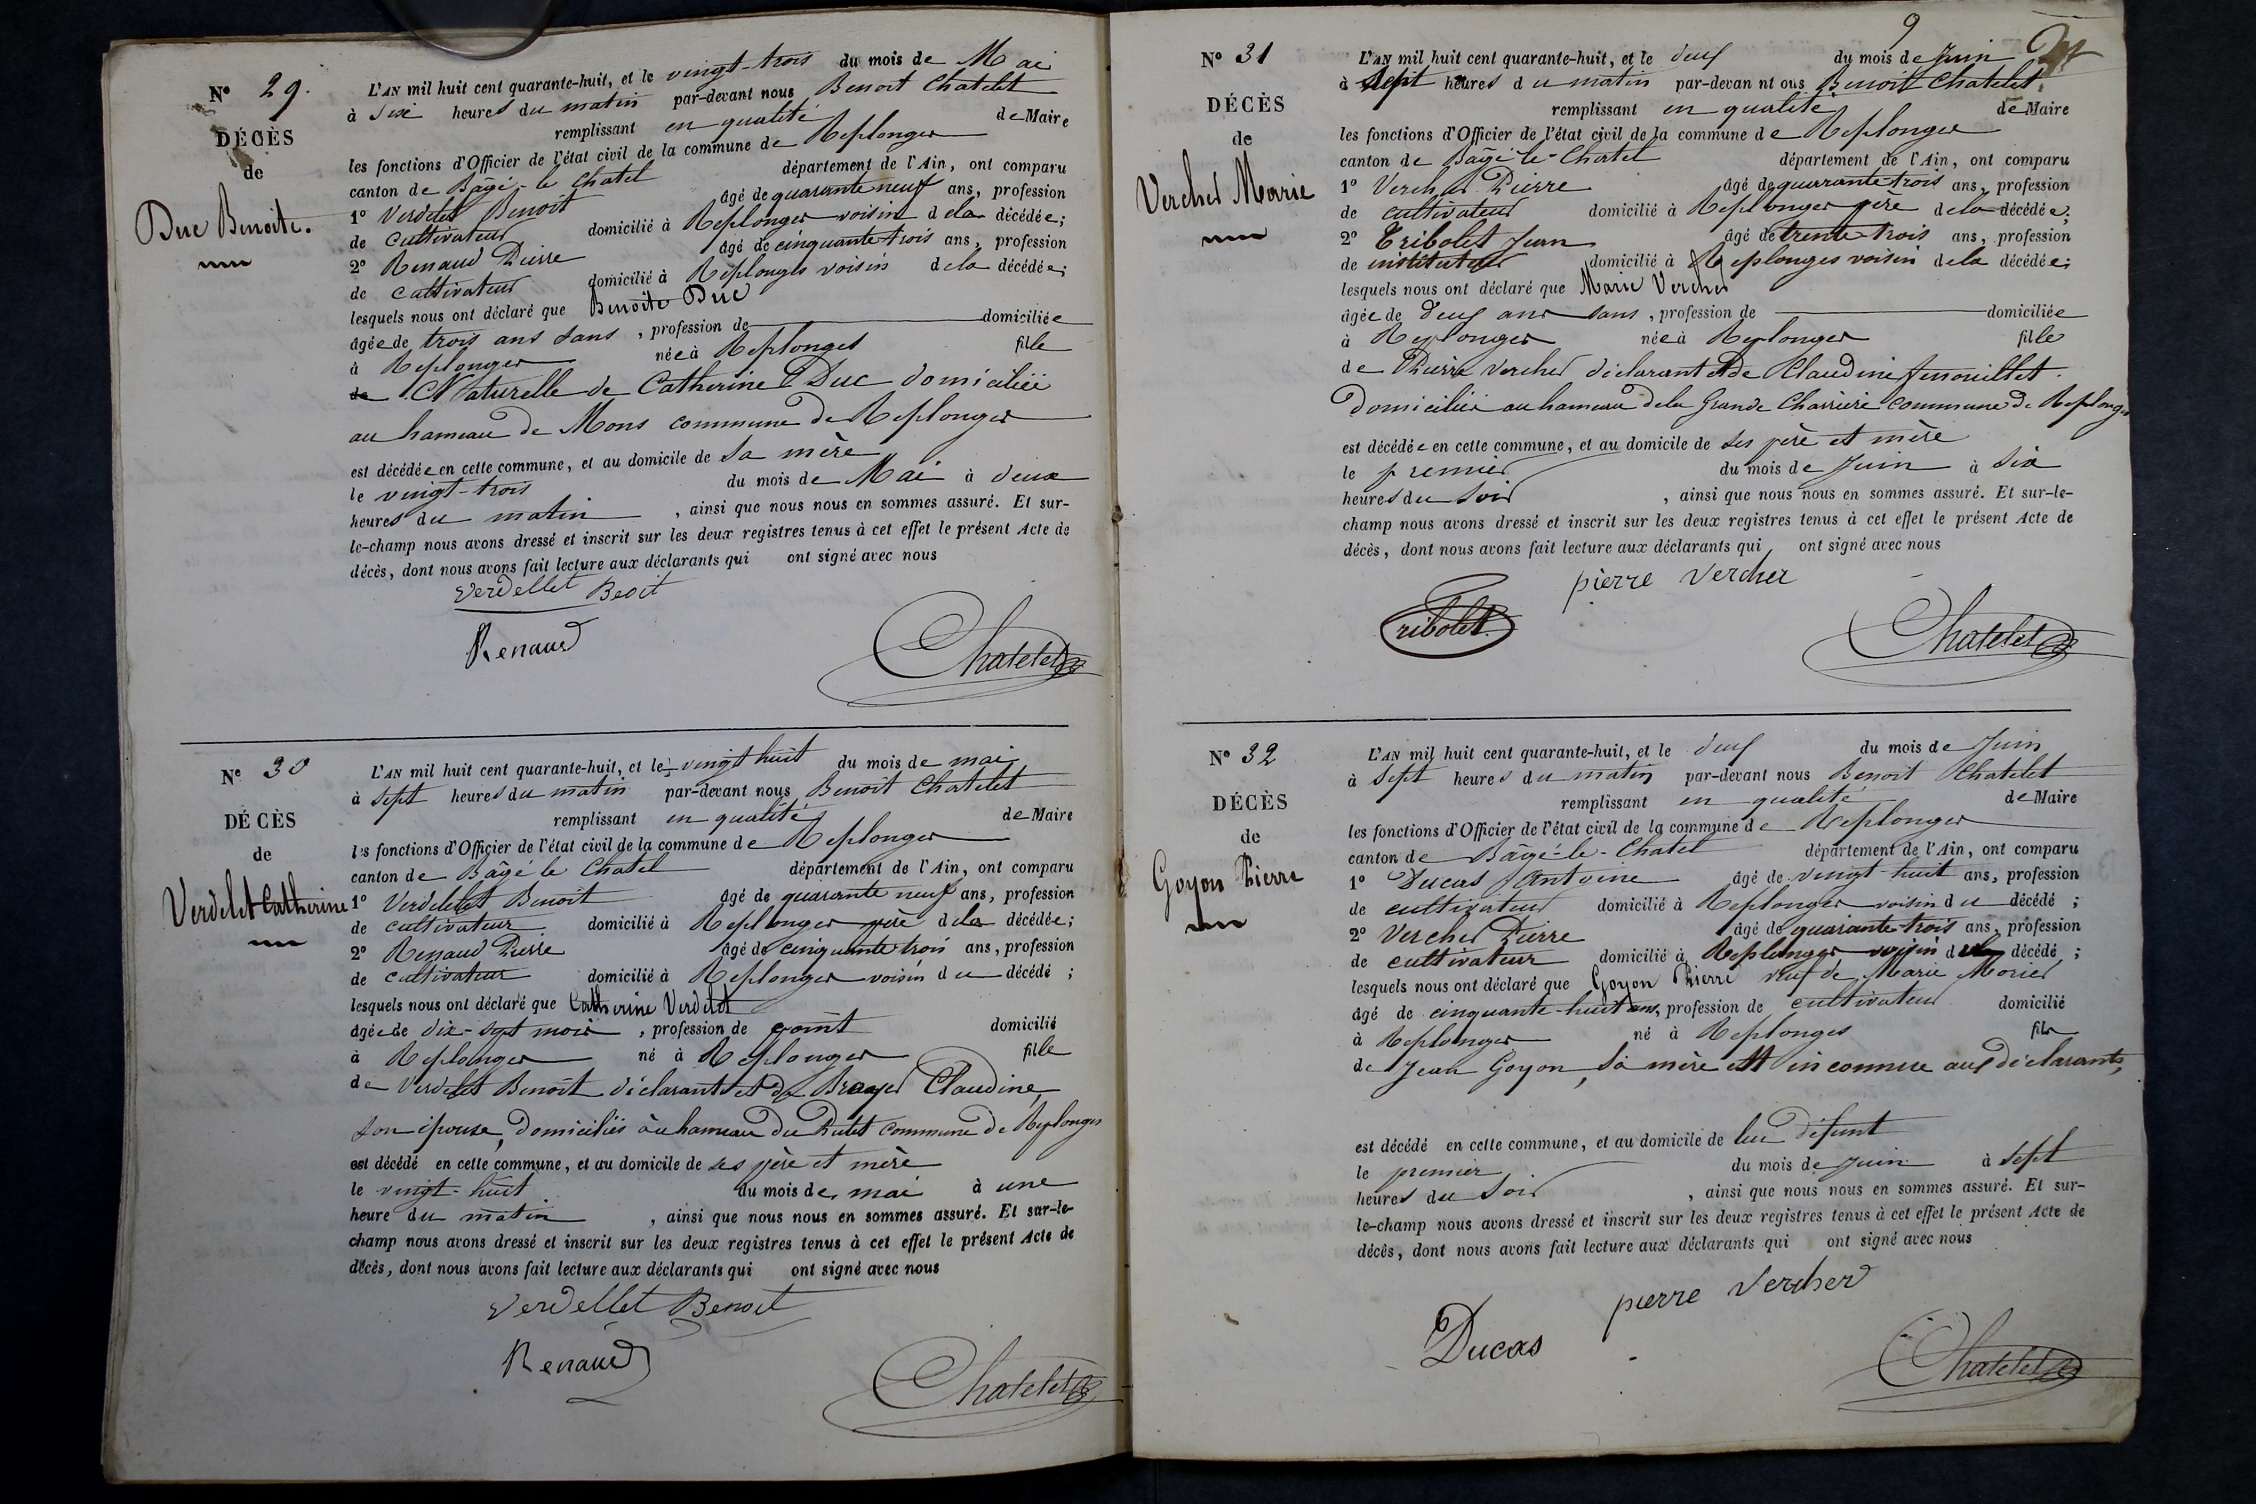 N° 29.
DÉCÈS
de
Duc Benoite.
L'AN mil huit cent quarante-huit, et le vingt-trois du mois de Mai
à Six heures du matin par-devant nous Benoit Chatelet
remplissant en qualité de Maire
les fonctions d'Officier de l'état civil de la commune de Replonges
canton de Bâgé-le Chatel département de l'Ain, ont comparu
1° Verdelet Benoit âgé de quarante neuf ans, profession
de cultivateur domicilié à Replonges voisin de la décédée;
2° Renaud Pierre âgé de cinquante trois ans, profession
de cultivateur domicilié à Replonges voisin de la décédée;
lesquels nous ont déclaré que Benoite Duc
âgée de trois ans sans, profession de domiciliée
à Replonges née à Replonges fille
de Naturelle de Catherine Duc domiciliée
au hameau de Mons commune de Replonges
est décédée en cette commune, et au domicile de Sa mère
le vingt-trois du mois de Mai à deux
heures du matin, ainsi que nous nous en sommes assuré. Et sur-
le-champ nous avons dressé et inscrit sur les deux registres tenus à cet effet le présent Acte de
décès, dont nous avons fait lecture aux déclarants qui ont signé avec nous
Verdellet Beoit
Renaud
Chatelet
N° 30
DÉCÈS
de
Verdelet Catherine
L'AN mil huit cent quarante-huit, et le vingt huit du mois de mai
à sept heures du matin par-devant nous Benoit Chatelet
remplissant en qualité de Maire
les fonctions d'Officier de l'état civil de la commune de Replonges
canton de Bâgé le Chatel département de l'Ain, ont comparu
1° Verdelet Benoit âgé de quarante neuf ans, profession
de cultivateur domicilié à Replonges père de la décédée;
2° Renaud Pierre âgé de cinquante trois ans, profession
de cultivateur domicilié à Replonges voisin du décédé;
lesquels nous ont déclaré que Catherine Verdelet
âgée de dix-sept mois, profession de point domicilié
à Replonges né à Replonges fille
de Verdelet Benoit déclarant et de Broyer Claudine,
son épouse, domiciliés au hameau du commune de Replonges
est décédé en cette commune, et au domicile de ses père et mère
le vingt-huit du mois de mai à une
heure du matin, ainsi que nous nous en sommes assuré. Et sur-le-
champ nous avons dressé et inscrit sur les deux registres tenus à cet effet le présent Acte de
décès, dont nous avons fait lecture aux déclarants qui ont signé avec nous
Verdellet Benoit
Renaud
Chatelet
9
N° 31
DÉCÈS
de
Vercher Marie
L'AN mil huit cent quarante-huit, et le deux du mois de Juin
à Sept heures du matin par-devan nt ous Benoit Chatelet
remplissant en qualité de Maire
les fonctions d'Officier de l'état civil de la commune de Replonges
canton de Bâgé-le-Chatel département de l'Ain, ont comparu
1° Vercher Pierre âgé de quarante-trois ans, profession
de cultivateur domicilié à Replonges père de la décédée;
2° Tribolet Jean âgé de trente-trois ans, profession
de instituteur domicilié à Replonges voisin de la décédée;
lesquels nous ont déclaré que Marie Vercher
âgée de deux ans sans, profession de domiciliée
à Replonges née à Replonges fille
de Pierre Vercher déclarant et de Claudine fenouillet.
Domiciliés au hameau de la Grande Charrière commune de Replonges
est décédée en cette commune, et au domicile de ses père et mère
le premier du mois de Juin à six
heures du soir, ainsi que nous nous en sommes assuré. Et sur-le-
champ nous avons dressé et inscrit sur les deux registres tenus à cet effet le présent Acte de
décès, dont nous avons fait lecture aux déclarants qui ont signé avec nous
pierre Vercher
Tribolet
Chatelet
N° 32
DÉCÈS
de
Goyon Pierre
L'AN mil huit cent quarante-huit, et le deux du mois de Juin
à sept heures du matin par-devant nous Benoit Chatelet
remplissant en qualité de Maire
les fonctions d'Officier de l'état civil de la commune de Replonges
canton de Bâgé-le-Chatel département de l'Ain, ont comparu
1° Ducas Antoine âgé de vingt-huit ans, profession
de cultivateur domicilié à Replonges voisin du décédé;
2° Vercher Pierre âgé de quarante-trois ans, profession
de cultivateur domicilié à Replonges voisin du décédé;
lesquels nous ont déclaré que Goyon Pierre veuf de Marie Morier
âgé de cinquante-huit ans, profession de cultivateur domicilié
à Replonges né à Replonges fils
de Jean Goyon, sa mère est inconnue aux déclarants,
est décédé en cette commune, et au domicile de lui défunt
le premier du mois de Juin à Sept
heures du soir, ainsi que nous nous en sommes assuré. Et sur-
le-champ nous avons dressé et inscrit sur les deux registres tenus à cet effet le présent Acte de
décès, dont nous avons fait lecture aux déclarants qui ont signé avec nous
pierre Vercher
Ducas
Chatelet